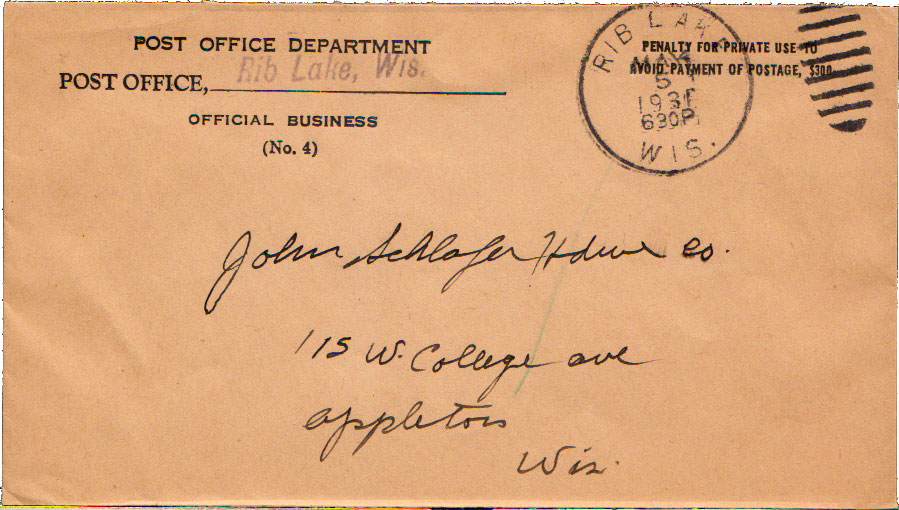 POST OFFICE DEPARTMENT
POST OFFICE, Rib Lake, Wis.
OFFICIAL BUSINESS
(No. 4)
RIB LAKE
MAR
5
1931
630P
WIS.
PENALTY FOR PRIVATE USE TO
AVOID PAYMENT OF POSTAGE, $300
John Schlafer Hdwe Co.
115 W. College ave
appleton
Wis.